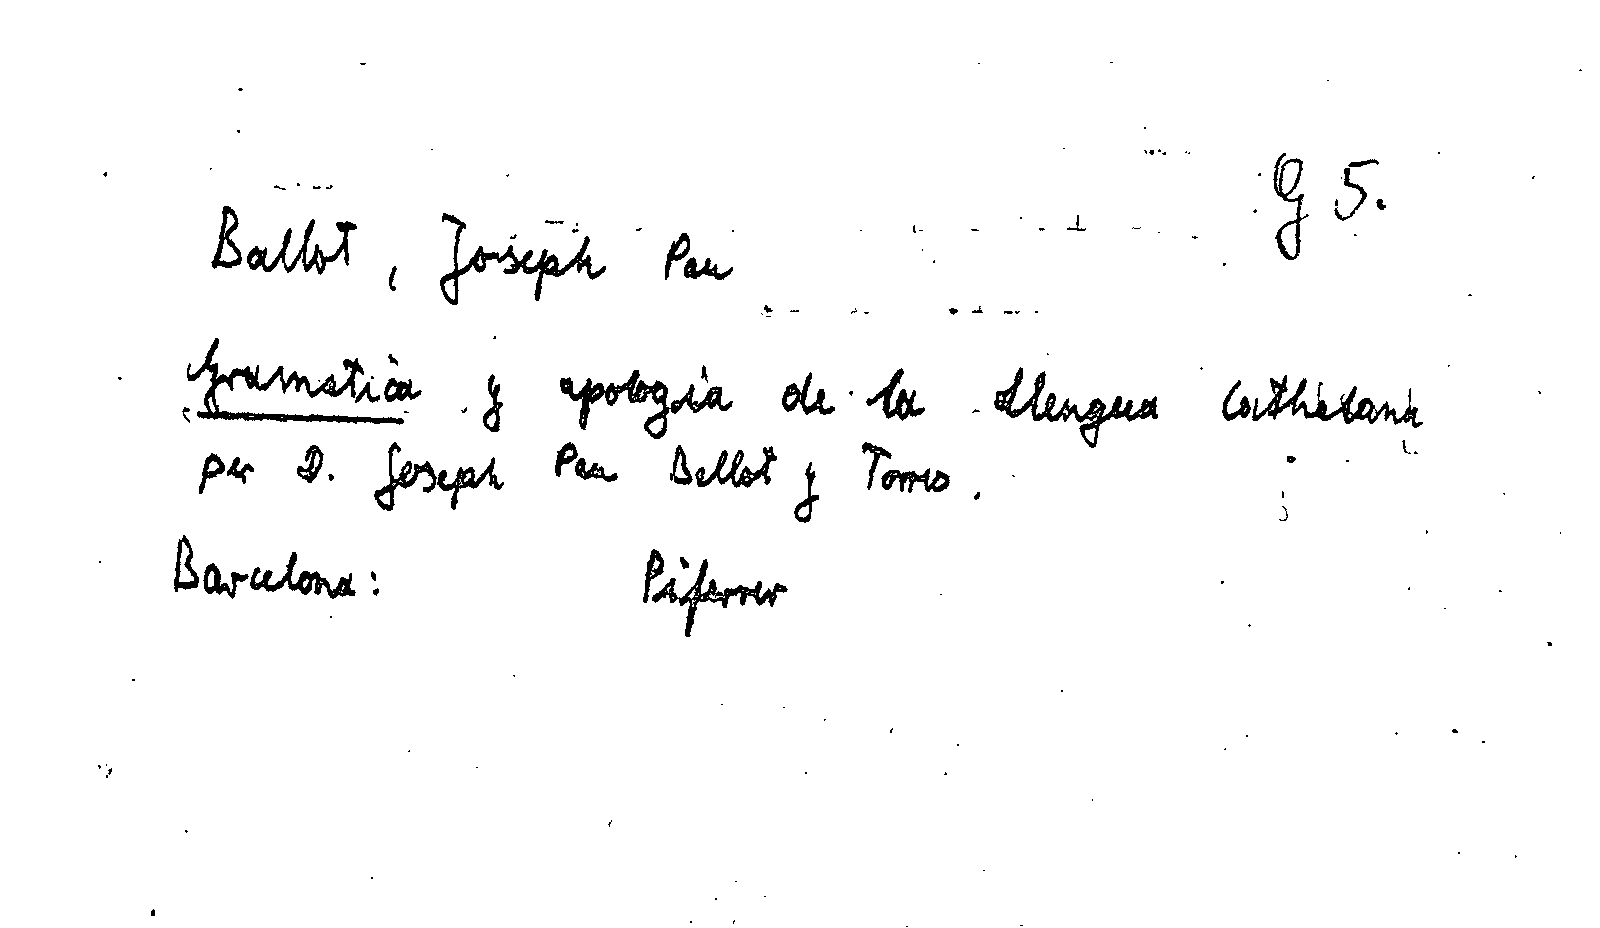 G 5.
Ballot, Joseph Pau
Gramatica y apologia de la Llengua Cathelana
per D. Joseph Pau Ballot y Torres.
Barcelona: Piferrer